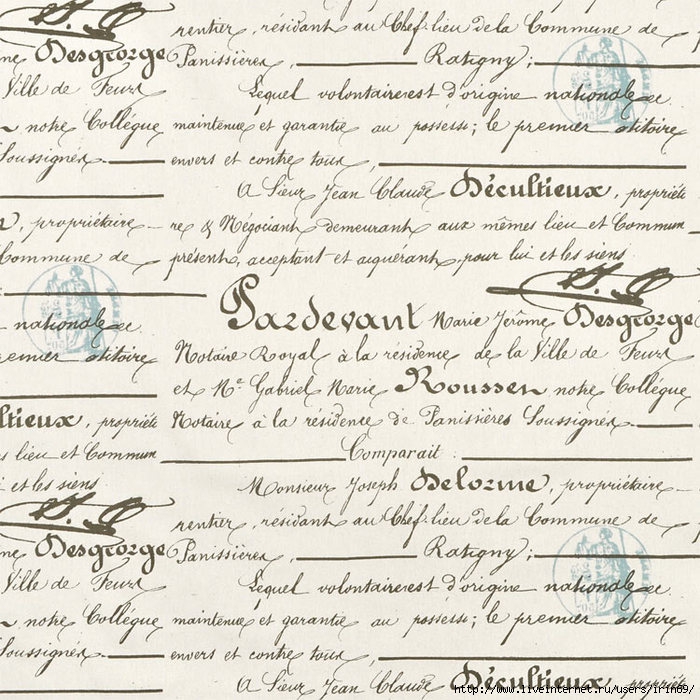 rentier, résidant au Chef-lieu de la Commune de
Desgeorge Panissières, Ratigny;
Ville de Feurs Lequel volontaire est d'origine nationale
notre Collégue maintenue et garantie au possessi; le premier
Soussignés envers et contre tous,
A Sieur Jean Claude Décultieux, propriéte
propriétaire re & Négociant demeurant aux mêmes lieu et Commun
Commune de présent, acceptant et aquérant pour lui et les siens
Pardevant Marie Jérôme Desgeorge
nationale Notaire Royal à la résidence de la Ville de Feurs
premier et Me Gabriel Marie Roussen notre Collégue
ltieux, propriéte Notaire à la résidence de Panissières Soussignés
s lieu et Commun Comparait
et les siens Monsieur Joseph Delorme, propriétaire
rentier, résidant au Chef-lieu de la Commune de
Desgeorge Panissières, Ratigny;
Ville de Feurs Lequel volontaire est d'origine nationale
notre Collégue maintenue et garantie au possessi; le premier
Soussignés envers et contre tous,
A Sieur Jean Claude Décultieux, propriéte